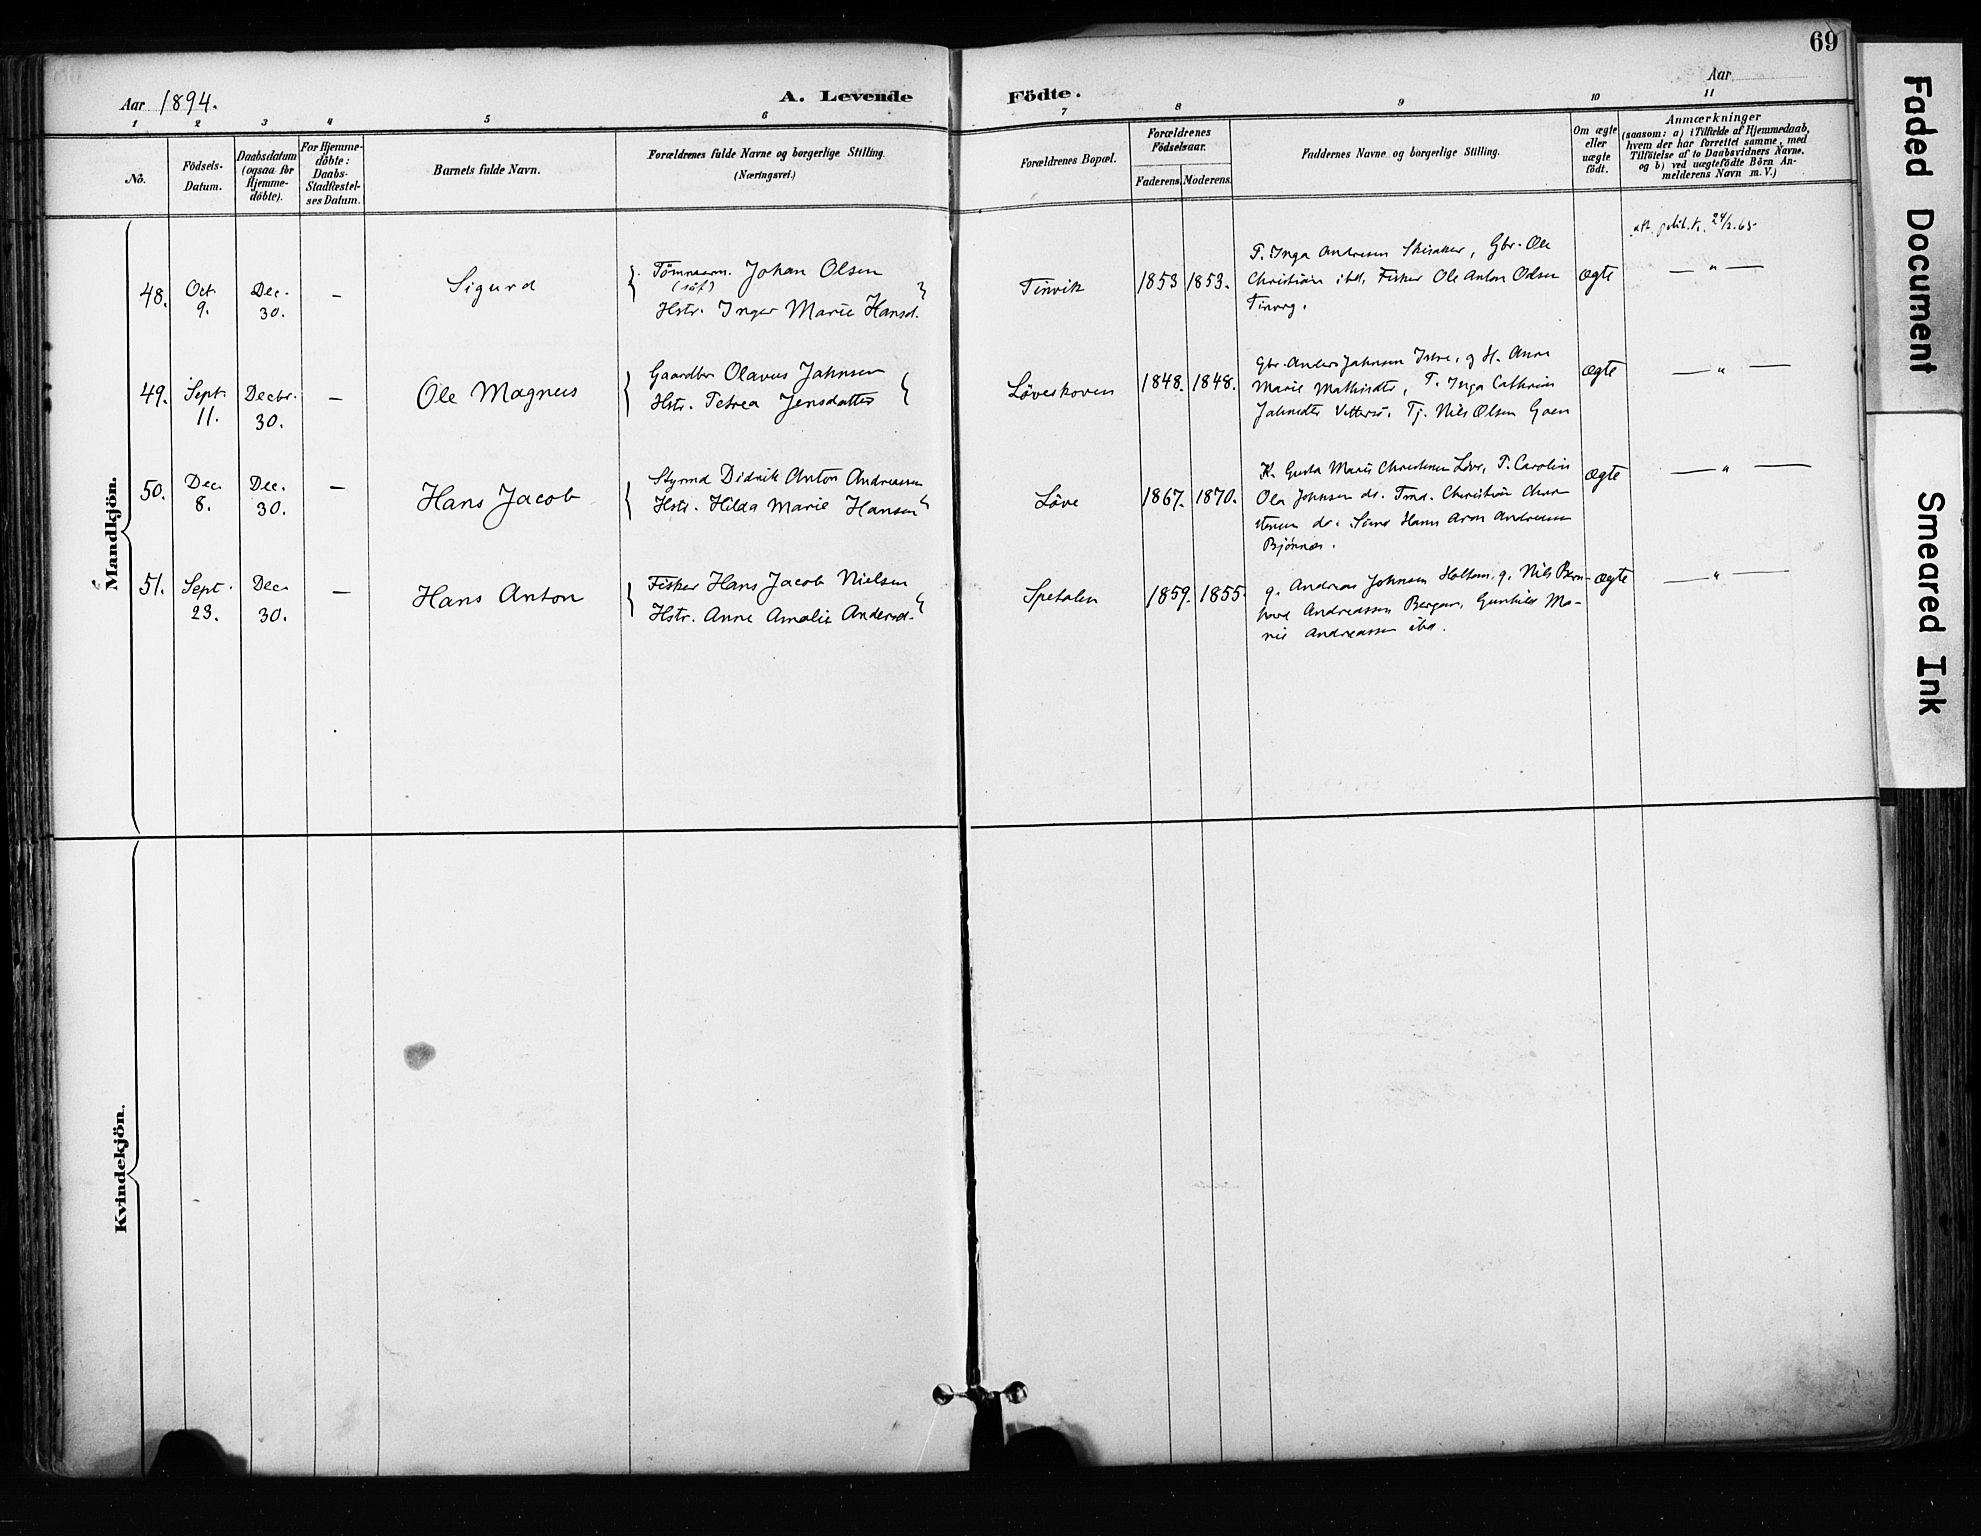 69
Aar 1894. A. Levende Födte. Aar
1 2 3 4 5 6 7 8 9 10 11
No.
Födsels-
Datum.
Daabsdatum
(ogsaa for
Hjemme-
döbte).
For Hjemme-
döbte:
Daabs-
Stadfæstel-
ses Datum.
Barnets fulde Navn.
Forældrenes fulde Navne og borgerlige Stilling.
(Næringsvei.)
Forældrenes Bopæl.
Forældrenes
Födselsaar.
Faderens. Moderens.
Faddernes Navne og borgerlige Stilling.
Om ægte
eller
uægte
födt.
Anmærkninger
(saasom: a) i Tilfælde af Hjemmedaab,
hvem der har forrettet samme, med
Tilföielse af to Daabsvidners Navne.
og b) ved uægtefödte Börn An-
melderens Navn m. V.)
Mandkjön.
48.
Oct
9.
Dec.
30.
—
Sigurd
Johan Olsen
Hstr. Inger Marie Hansd.
Tinvik
1853 1853.
F. Inga Andresen Skisaker, Gbr. Ole
Christian ibd, Fisker Ole Anton Olsen
ægte
24/2.65.
— " —
49.
Sept
11.
Decbr.
30.
—
Ole Magnus
Gaardbr Olavus Jahnsen
Hstr. Petrea Jensdatter
Löveskoven
1848. 1848.
Gbr. Anders Jahnsen Istre, g H. Anne
Marie Mathisdtr, F. Inga Cathrine
Jahnsdtr Tj. Nils Olsen Goen
ægte
— " —
50.
Dec
8.
Dec.
30.
—
Hans Jacob
Styrmd Didrik Anton Andreassen
Hstr. Hilda Marie Hansen
Löve
1867. 1870.
K. Gusta Marie Christensen Löve, F. Caroline
Ole Johnsen ds. Tmd. Christian Chri
stensen ds. Hans Aron Andreassen
Bjönnes.
ægte
— " —
51.
Sept.
23.
Dec
30.
—
Hans Anton
Fisker Hans Jacob Nielsen
Hstr. Anne Amalie Andersd.
Spetalen
1859. 1855
g. Andreas Johnsen Holtom, g. Nils Bern-
hard Andreassen Bergan, Gunhild Ma-
rie Andreassen ibd.
ægte
— " —
Kvindekjön.
Faded Document
Smeared Ink